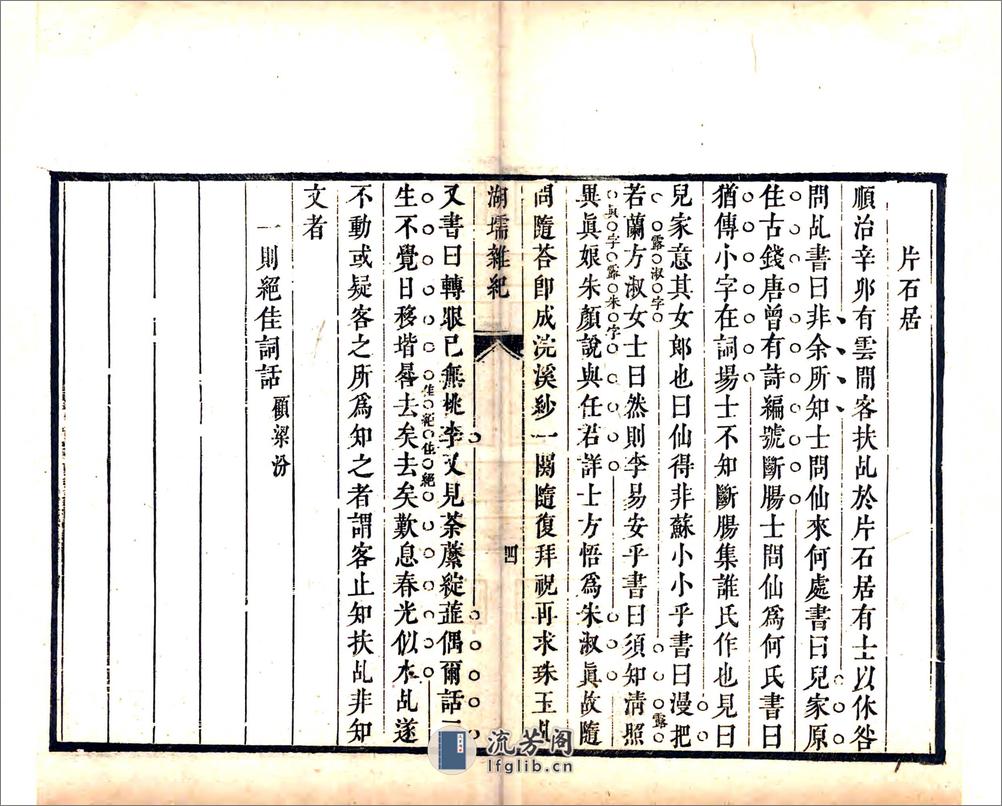 片石居
順治辛卯有雲間客扶乩於片石居有士以休咎
問乩書曰非余所知士問仙來何處書曰兒家原
住古錢唐曾有詩編號斷腸士問仙爲何氏書曰
猶傳小字在詞場士不知斷腸集誰氏作也見曰
兒家意其女郎也曰仙得非蘇小小乎書曰漫把
露淑字
若蘭方淑女士曰然則李易安乎書曰須知清照
露
眞字露朱字
異眞娘朱顏說與任君詳士方悟爲朱淑眞故隨
問隨答卽成浣溪紗一闋隨復拜祝再求珠玉乩
湖壖雜紀
四
又書曰轉眼已無桃李又見荼蘼綻蕋偶爾話三
生不覺日移堦晷去矣去矣歎息春光似水乩遂
佳絕佳絕
不動或疑客之所爲知之者謂客止知扶乩非知
文者
一則絕佳詞話 顧梁汾
流芳阁
lfglib.cn